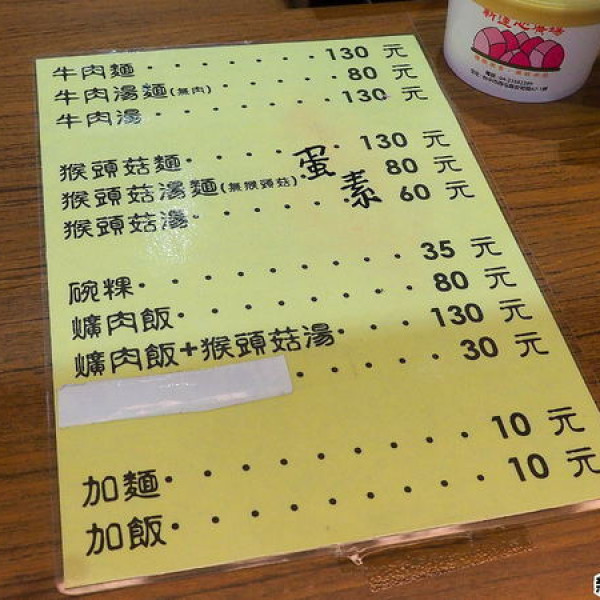 新連心農場
牛肉麵 130 元
牛肉湯麵(無肉) 80 元
牛肉湯 130 元
猴頭菇麵 130 元
猴頭菇湯麵(無猴頭菇) 80 元
猴頭菇湯 60 元
蛋素
碗粿 35 元
爌肉飯 80 元
爌肉飯+猴頭菇湯 130 元
30 元
加麵 10 元
加飯 10 元